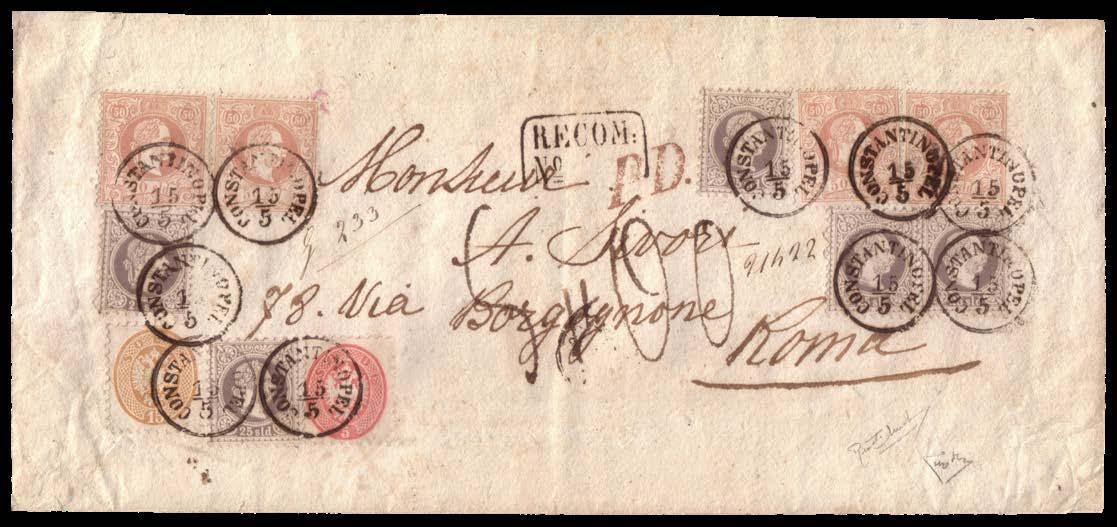 50 50
50 50
RECOM:
No
P.D.
CONSTANTINOPEL 15/5
CONSTANTINOPEL 15/5
CONSTANTINOPEL 15/5
CONSTANTINOPEL 15/5
CONSTANTINOPEL 15/5
Monsieur
233
A. Sivori
21422
CONSTANTINOPEL 15/5
CONSTANTINOPEL 15/5
CONSTANTINOPEL 15/5
73. Via Borgognone
Roma
CONSTANTINOPEL 15/5
CONSTANTINOPEL 15/5
15
25 sld
5